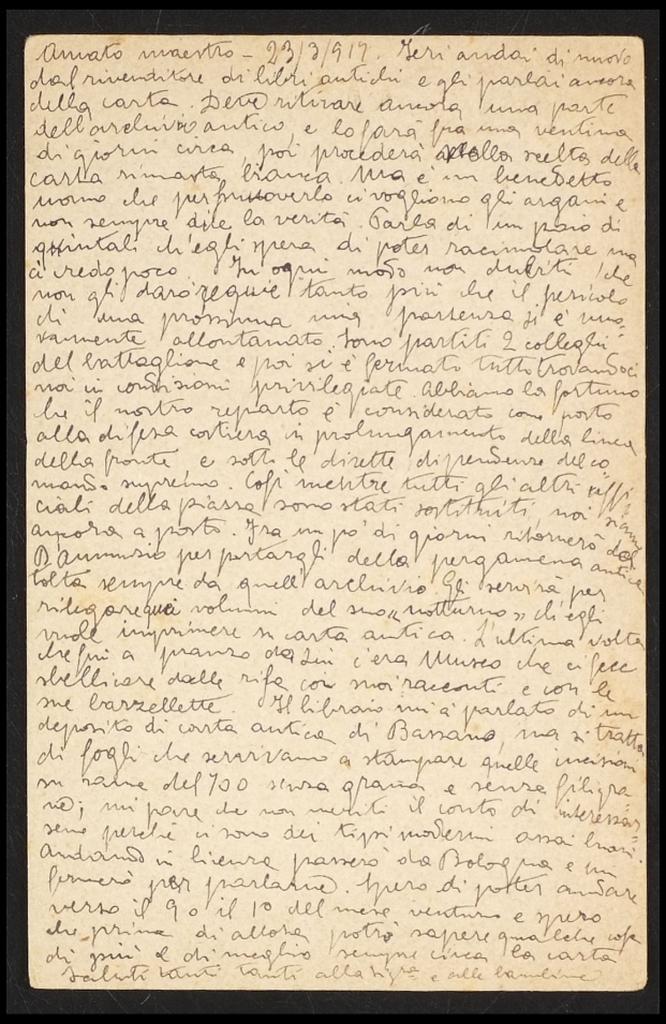 Amato maestro – 23/3/917. Ieri andai di nuovo
dal rivenditore di libri antichi e gli parlai ancora
della carta. Deve ritirare ancora una parte
dell'archivio antico, e lo farà fra una ventina
di giorni circa, poi procederà alla scelta della
carta rimasta bianca. Ma è un benedetto
uomo che per smuoverlo ci vogliono gli argani e
non sempre dice la verità. Parla di un paio di
quintali ch'egli spera di poter racimolare ma
ci credo poco. In ogni modo non dubiti che
non gli darò requie tanto più che il pericolo
di una prossima mia partenza si è nuo-
vamente allontanato. Sono partiti 2 colleghi
del battaglione e poi si è fermato tutto trovandoci
noi in condizioni privilegiate. Abbiamo la fortuna
che il nostro reparto è considerato come posto
alla difesa costiera in prolungamento della linea
della fronte e sotto le dirette dipendenze del co-
mando supremo. Così mentre tutti gli altri uffi-
ciali della piazza sono stati sostituiti, noi siamo
ancora a posto. Fra un po' di giorni ritornerò dal
D'Annunzio per portargli della pergamena antica
tolta sempre da quell'archivio. Gli servirà per
rilegare volumi del suo „notturno" ch'egli
vuole imprimere su carta antica. L'ultima volta
che fui a pranzo da Lui c'era Museo che ci fece
sbellicare dalle risa coi suoi racconti e con le
sue barzellette. Il libraio mi à parlato di un
deposito di carta antica di Bassano, ma si tratta
di fogli che servivano a stampare quelle incisioni
su rame del 700 senza grana e senza filigra-
na; mi pare che non meriti il conto di interessar-
sene perché ci sono dei tipi moderni assai buoni.
Andando in licenza passerò da Bologna e mi
fermerò per parlarne. Spero di poter andare
verso il 9 o il 10 del mese venturo e spero
che prima di allora potrò sapere qualche cosa
di più e di meglio sempre circa la carta
Saluti tanti tanti alla Sigra e alle bambine